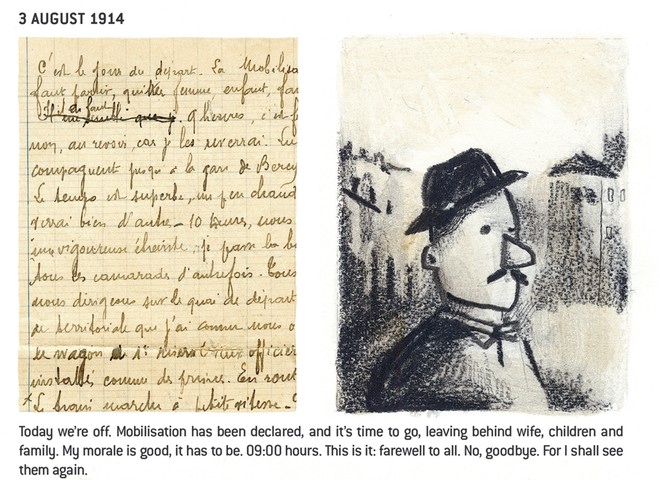 3 AUGUST 1914
C'est le jour du départ. La Mobilisa
faut partir, quitter femme, enfant, fam
Il le faut 9 heures, c'est f
non, au revoir, car je les reverrai. Ils
compagnent jusqu'à la gare de Bercy
Le temps est superbe, un peu chaud
verrai bien d'autres - 10 heures, nous
une vigoureuse étreinte, je passe la ba
tous les camarades d'autrefois. Tous
nous dirigeons sur le quai de départ
de territoriale que j'ai comme nous o
le wagon de 1e réservé aux officier
installés comme des princes. En rout
Le train marche à petite vitesse.
Today we're off. Mobilisation has been declared, and it's time to go, leaving behind wife, children and
family. My morale is good, it has to be. 09:00 hours. This is it: farewell to all. No, goodbye. For I shall see
them again.